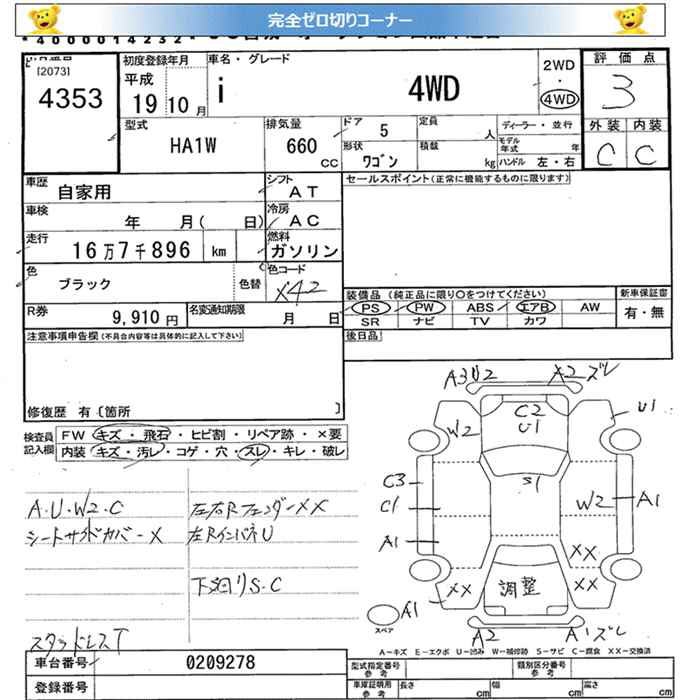 完全ゼロ切りコーナー
[2073]
4353
初度登録年月
平成
19年10月
車名・グレード
i 4WD
2WD
・
4WD
評価点
3
外装 内装
C C
型式
HA1W
排気量
660 cc
ドア
5
定員
人
形状
ワゴン
積載
kg
ディーラー・並行
モデル年式 年
ハンドル 左・右
車歴
自家用
シフト
AT
車検
年 月( 日)
冷房
AC
走行
16万7千896 km
燃料
ガソリン
色
ブラック
色替
色コード
X42
R券
9,910円
名変通知期限
月 日
セールスポイント(正常に機能するものに限ります)
装備品 (純正品に限り○をつけてください)
PS PW ABS エアB AW
SR ナビ TV カワ
新車保証書
有・無
後日品
注意事項申告欄(不具合内容等は具体的に記入して下さい)
修復歴 有〔箇所 〕
検査員記入欄
FW キズ・飛石・ヒビ割・リペア跡・×要
内装 キズ・汚レ・コゲ・穴・スレ・キレ・破レ
A・U・W2・C
シートサイドカバー×
左右Rフェンダー××
左RインパネU
下廻りS・C
スタッドレスT
A3リ2
A2ズレ
C2
U1
W2
U1
S1
C3
C1
A1
W2
A1
××
××
××
調整
A1
A2
A1ズレ
スペア
A-キズ E-エクボ U-凹み W-補修跡 S-サビ C-腐食 XX-交換済
車台番号
0209278
登録番号
型式指定番号
参考
類別区分番号
参考
車庫証明用
参考
長さ cm
幅 cm
高さ cm